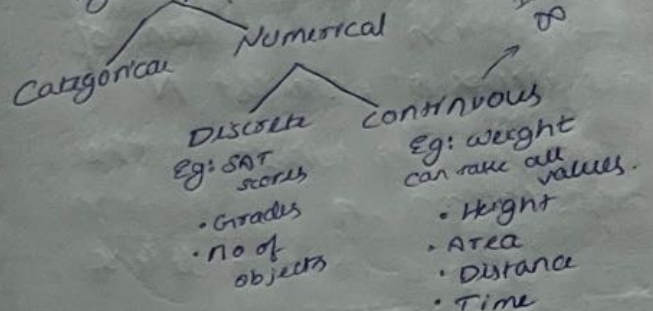 ∞
Numerical
Categorical
Discrete
Eg: SAT
scores
• Grades
• no of
objects
continuous
Eg: weight
can take all
values.
• Height
• Area
• Distance
• Time